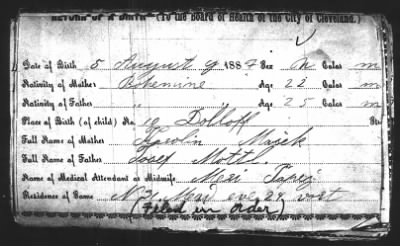 RETURN OF A BIRTH (To the Board of Health of the City of Cleveland.)
Date of Birth 5 August 9 1887 Sex M Color m
Nativity of Mother Bohemine Age 22 Color m
Nativity of Father " " Age 25 Color m
Place of Birth (of child) No. 19 Dolloff Str
Full Name of Mother Karolin
Full Name of Father Josef Mottl
Name of Medical Attendant or Midwife Meri
Residence of Same
(Filed in order)